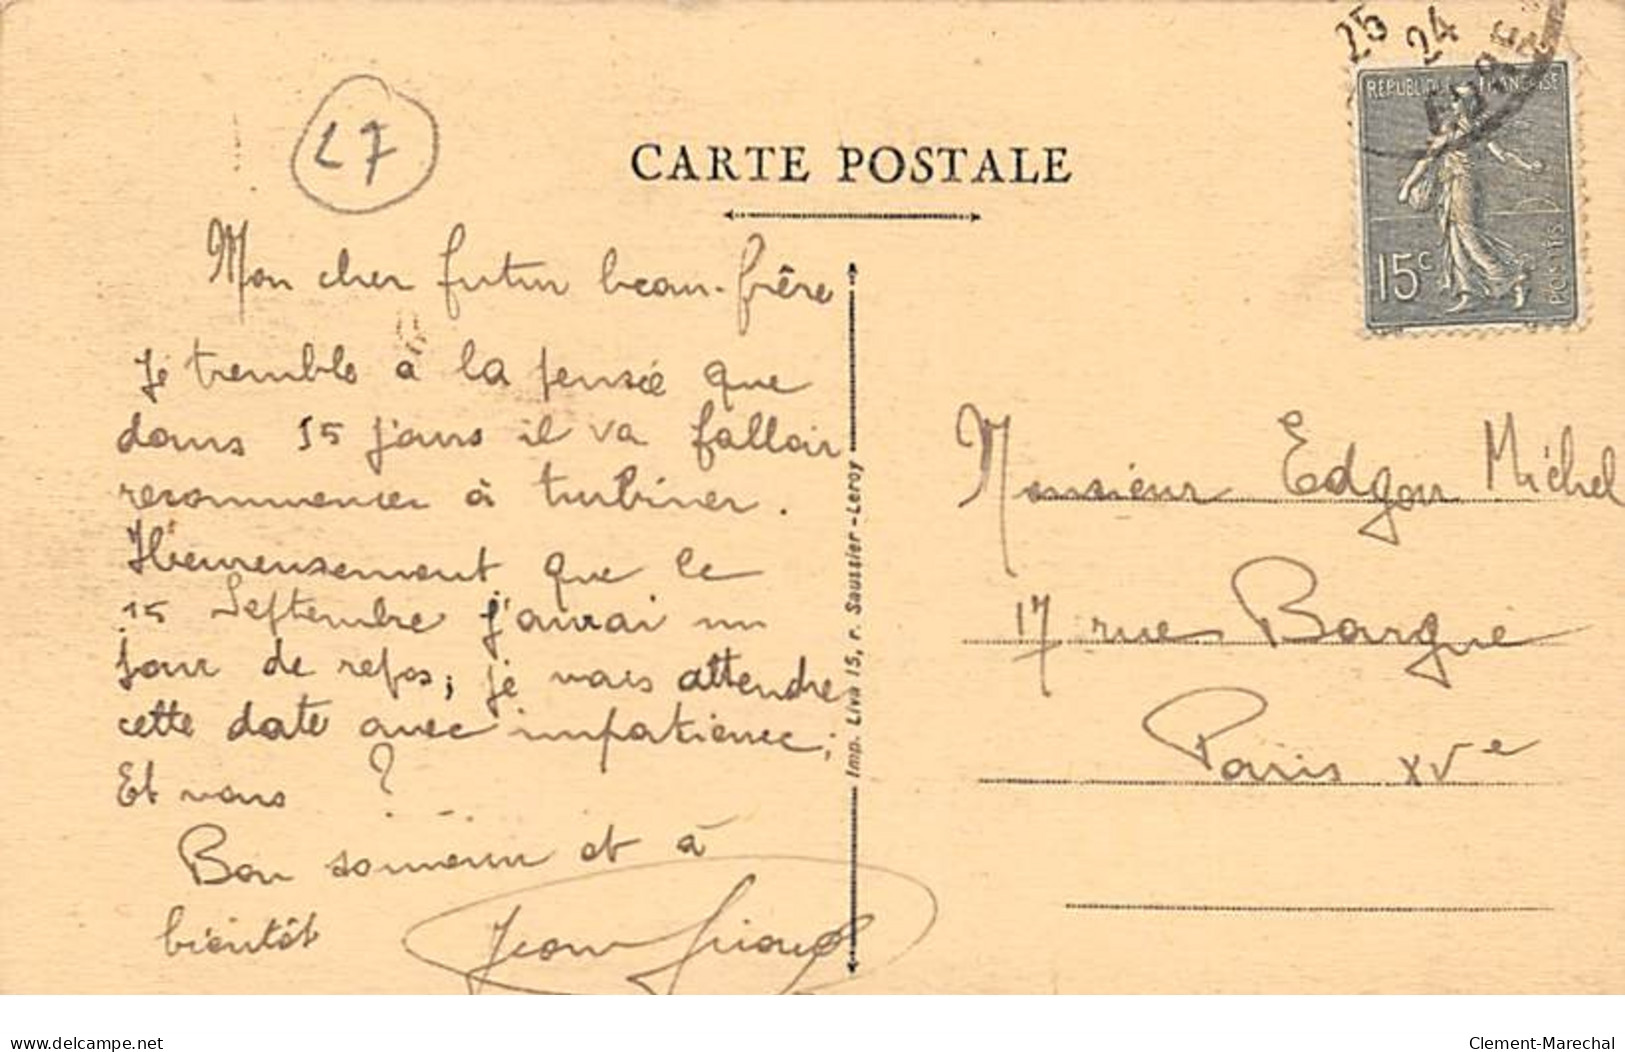 25
24
REPUBLIQUE FRANÇAISE
15c
POSTES
27
CARTE POSTALE
Mon cher futur beau-frère
Je tremble à la pensée que
dans 15 jours il va falloir
recommencer à turbiner.
Heureusement que le
15 Septembre j'aurai un
jour de repos; je vais attendre
cette date avec impatience;
Et vous ?
Bon souvenir et à
bientôt Jean
Imp. Liva 15, r. Saussier-Leroy
Monsieur Edgar Michel
17 rue Bargue
Paris XVe
delcampe.net
Clement-Marechal